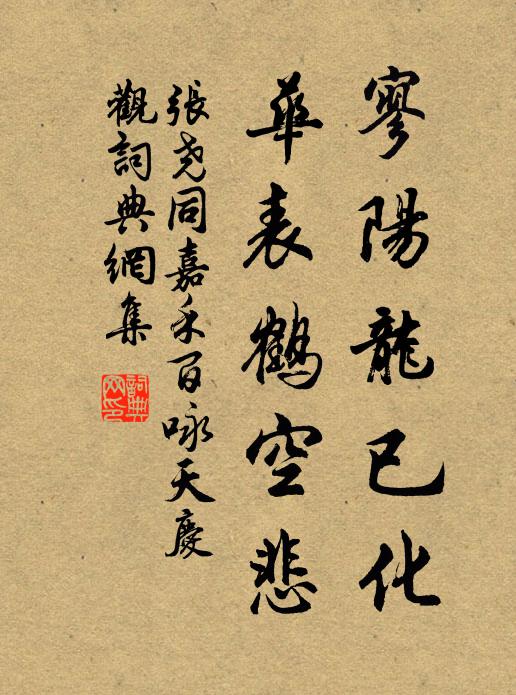 寥陽龍已化
華表鶴空悲
張堯同嘉禾百咏天慶
觀詞典網集
詞典網印